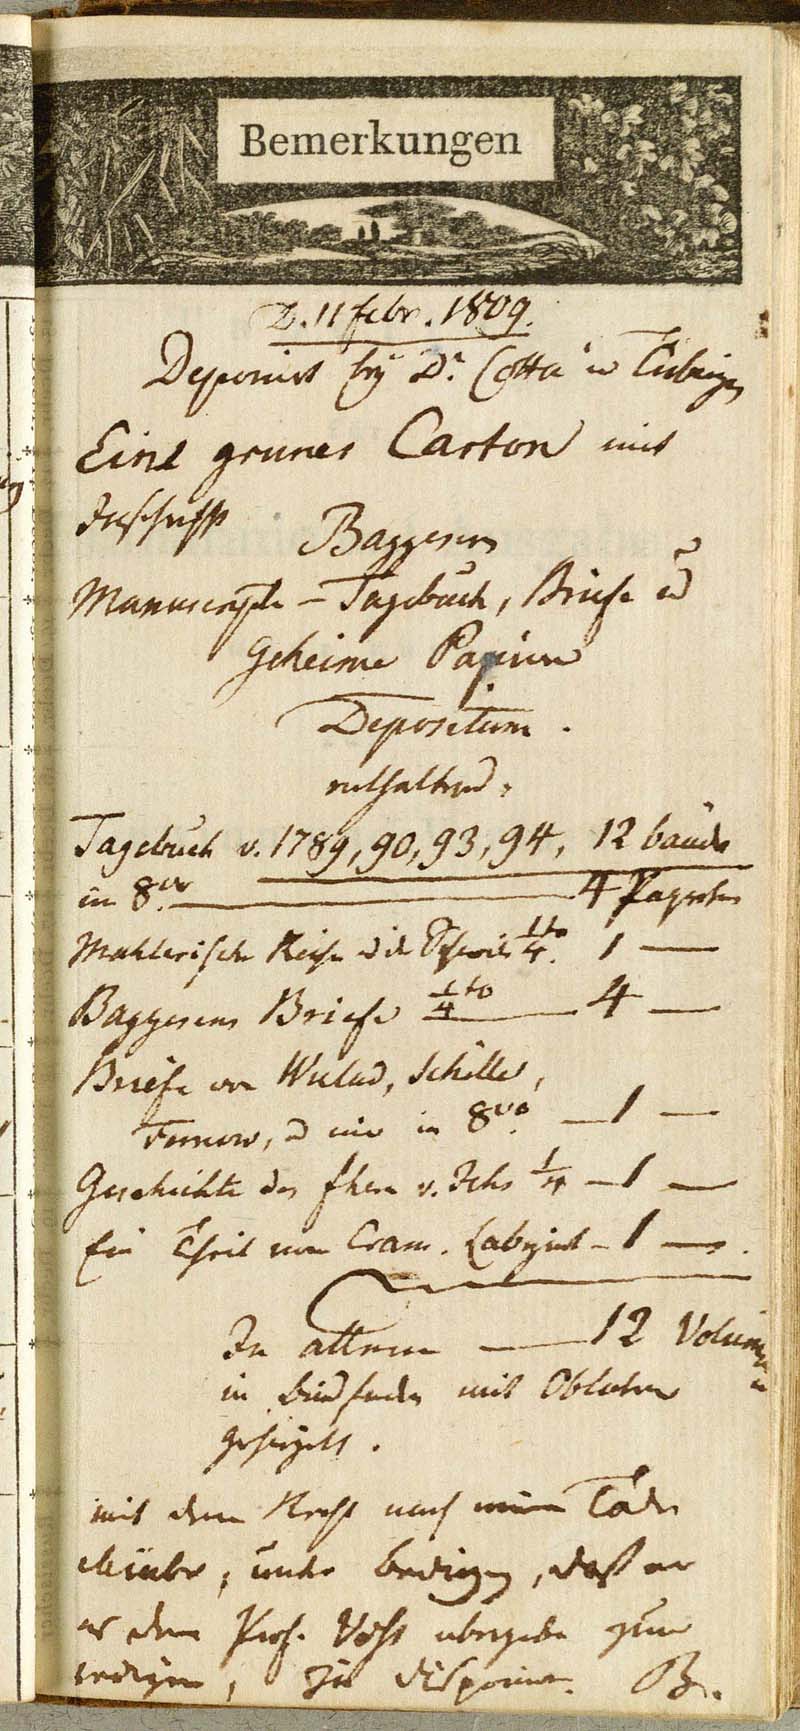 Bemerkungen
D. 11 febr. 1809.
Deponirt bey Dr. Cotta in Tübingen
Eine grunes Carton mit
Inschrift
Baggesens
Manuscripte - Tagebuch, Briefe und
Geheime Papiere
Depositum.
enthaltend:
Tagebuch v. 1789, 90, 93, 94, 12 bände
in 8vo 4 Paquete
Mahlerische Reise in die Schweitz 1/4to. 1 —
Baggesens Briefe 1/4to — 4 —
Briefe von Wieland, Schiller,
Fernow, in 8vo. — 1 —
Geschichte des v. 1/4 — 1 —
Ein Theil vom Labyrint - 1 —.
In allem — 12 Volumen
in Bindfaden mit Oblaten
gesiegelt.
mit dem Recht nach Tode
unter Bedingung, daß er
es dem Prof. Voss übergebe zum
zu disponiren. B.